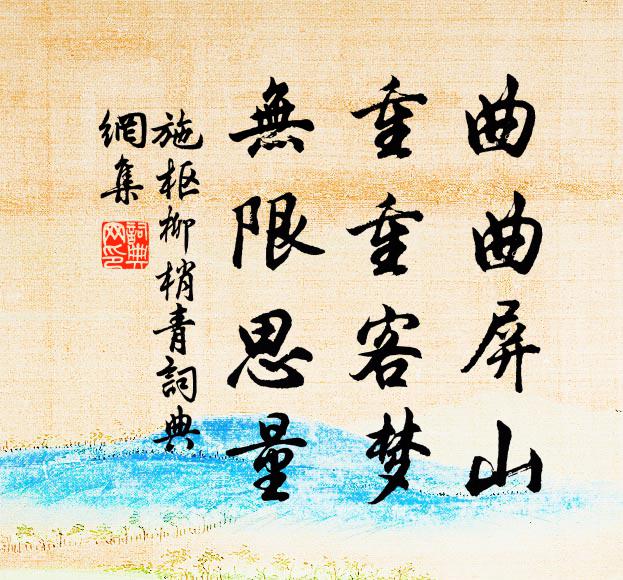 曲曲屏山
重重客梦
無限思量
施枢柳梢青詞典
網集
詞典网印